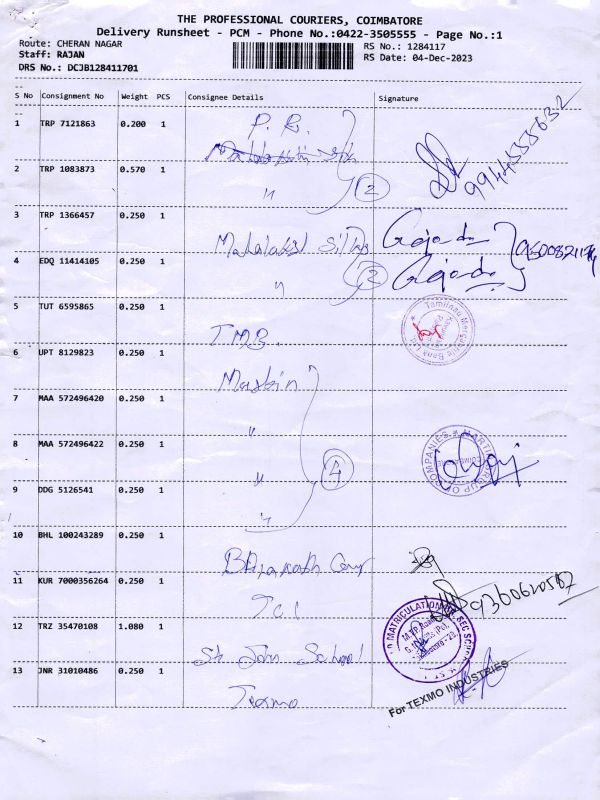 THE PROFESSIONAL COURIERS, COIMBATORE
Delivery Runsheet - PCM - Phone No.:0422-3505555 - Page No.:1
Route: CHERAN NAGAR
RS No.: 1284117
Staff: RAJAN
RS Date: 04-Dec-2023
DRS No.: DCJB128411701
S No Consignment No Weight PCS Consignee Details Signature
1 TRP 7121863 0.200 1 P. R.
2 TRP 1083873 0.570 1 " 2
3 TRP 1366457 0.250 1 Mahalaxmi Silks
4 EDQ 11414105 0.250 1 " 2
5 TUT 6595865 0.250 1 T.M.B.
Tamilnad Mercantile Bank Ltd
6 UPT 8129823 0.250 1 Martin
7 MAA 572496420 0.250 1 "
8 MAA 572496422 0.250 1 " 4
MARTIN GROUP OF COMPANIES
9 DDG 5126541 0.250 1 "
10 BHL 100243289 0.250 1
11 KUR 7000356264 0.250 1 TCI
12 TRZ 35470108 1.080 1 St John School
MATRICULATION SEC SCHOOL
13 JNR 31010486 0.250 1 Texmo
For TEXMO INDUSTRIES